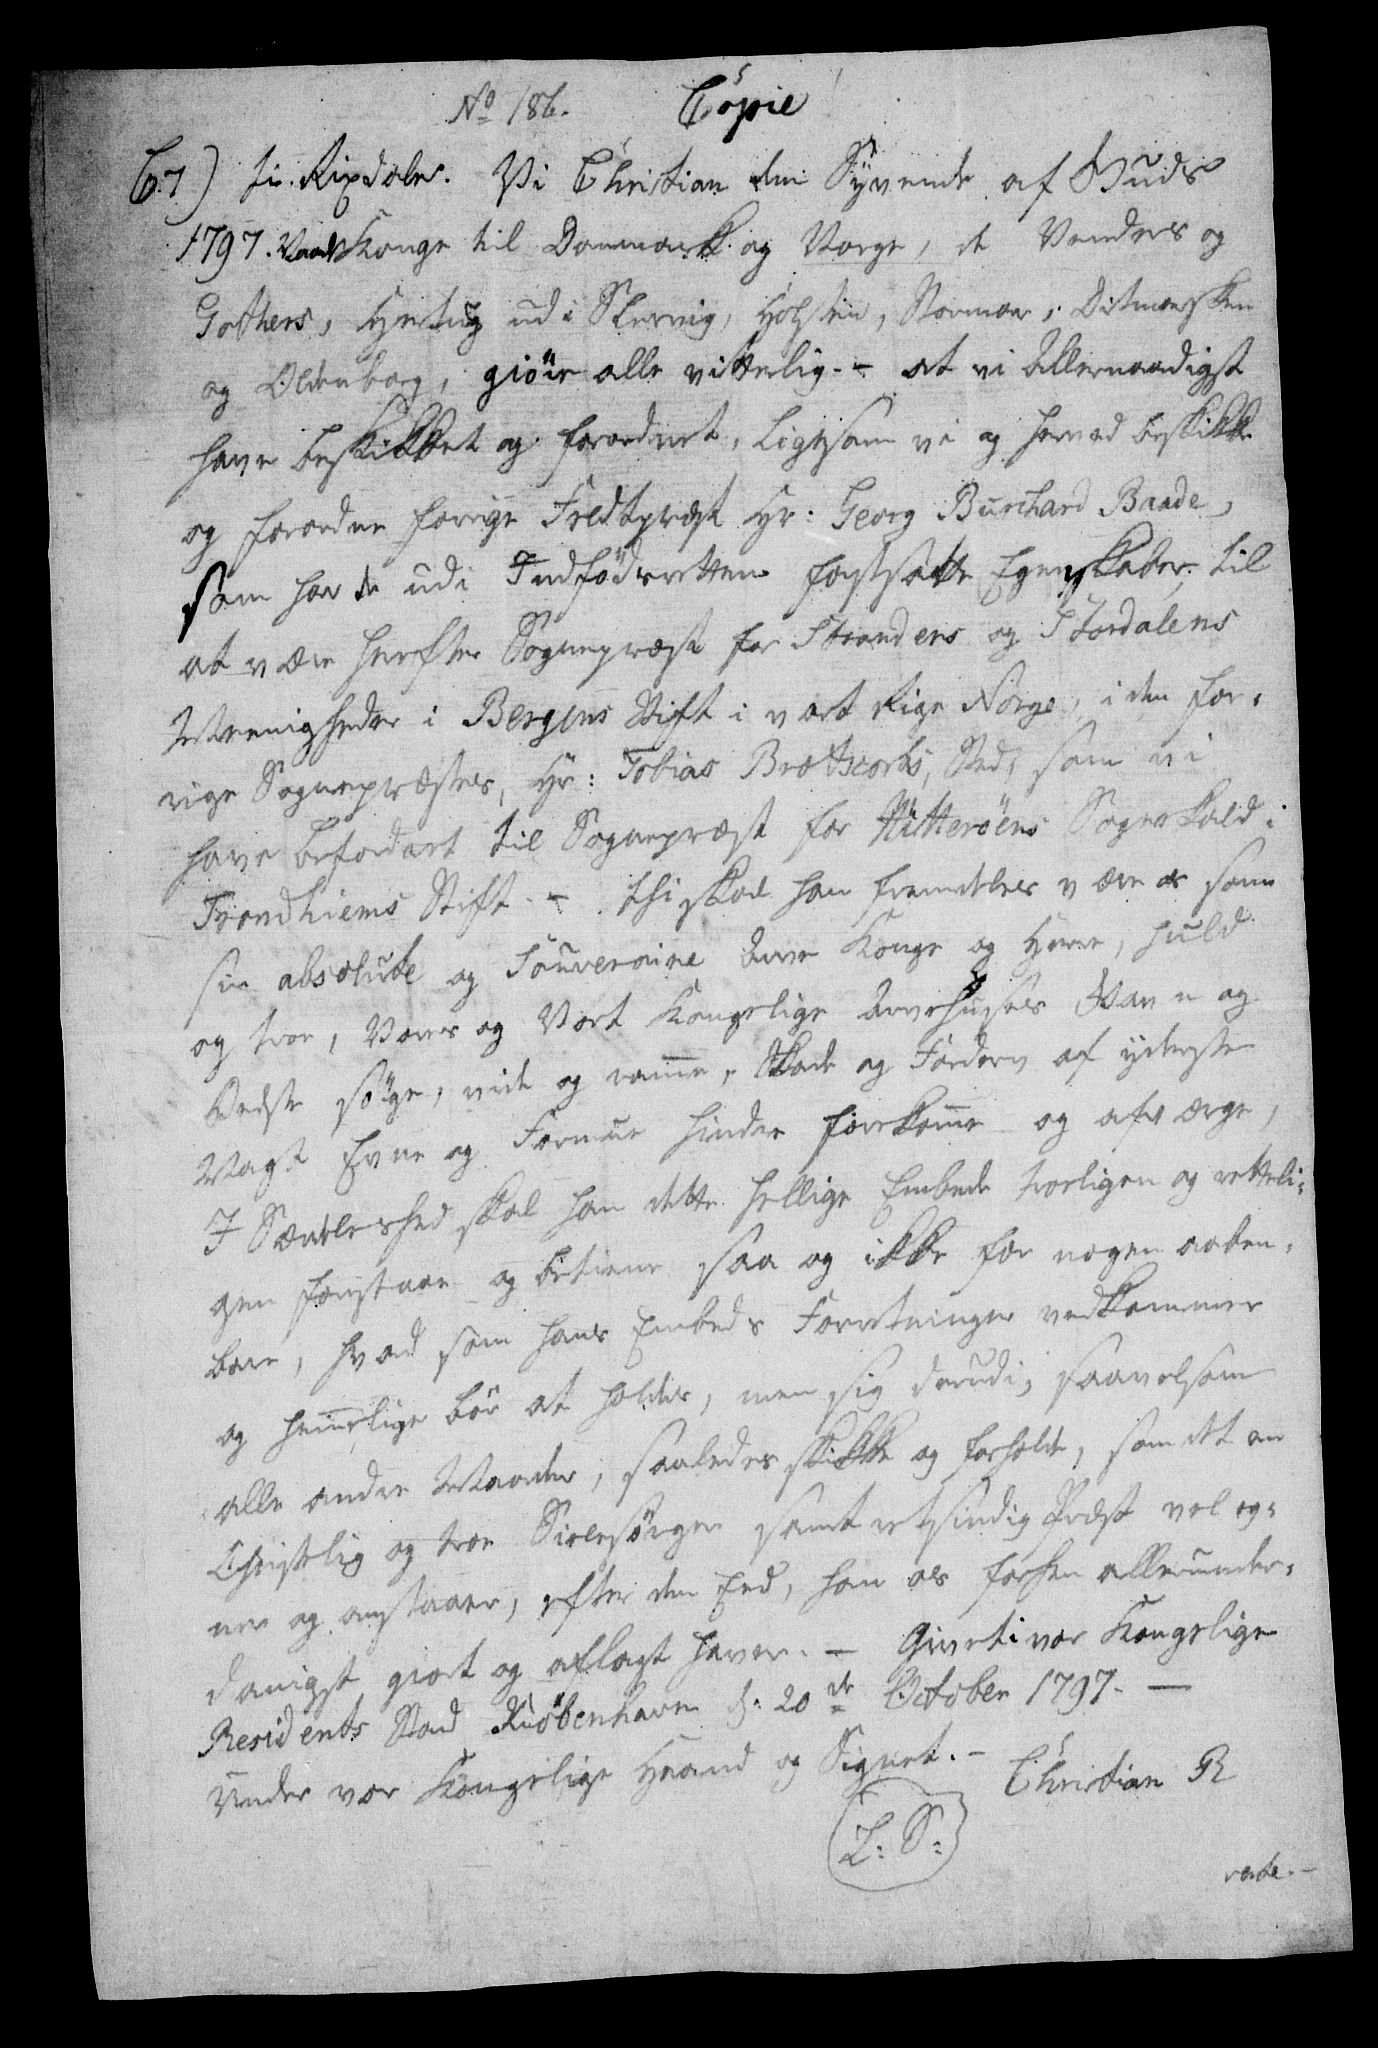 No 186. Copie
C.7) ti. Rixdaler. Vi Christian den Syvende af Guds
1797. Naade Konge til Danmark og Norge, de Venders og
Gothers, Hertug udi Slesvig, Holsten, Stormar, Ditmersken
og Oldenborg, giöre alle vitterlig - at vi Allernaadigst
have beskikket og forordnet, ligesom vi og herved beskikke
og forordne forrige Feltpræst Hr: Georg Burchard Baade,
som har de udi Indfödsretten fastsatte Egenskaber, til
at være herefter Sognepræst for Stranders og Stordalens
Meenigheder i Bergens Stift i vort Rige Norge, i den for-
rige Sognepræstes, Hr: Tobias Brotkorbs, Sted, som vi
have befordret til Sognepræst for Hitteröens Sognekald i
Trondhiems Stift - thi skal han fremdeles være os som
sin absolute og Souveraine Arve Konge og Herre, huld
og troe, Vores og Vort Kongelige Arvehuuses Gavn og
Bedste söge, vide og ramme, Skade og Fordærv af yderste
Magt Evne og Formue hindre forekomme og afværge,
I Særdeleshed skal han dette hellige Embede troeligen og retteli-
gen forestaae og betiene saa og ikke for nogen aaben-
bare, hvad som hans Embeds Forretninger vedkommer
og hemmelige bör at holdes, men sig derudi, saavelsom
alle andre Maader, saaledes skikke og forholde, som det en
Christelig og troe Sielesörger samt retsindig Præst vel eg-
ner og anstaaer, efter den Eed, han os forhen allerunder-
danigst giort og aflagt haver. - Givet i vor Kongelige
Residents Stad Kiöbenhavn d: 20de October 1797. -
Under vor Kongelige Haand og Signet. -
Christian R
L: S:
verte. -